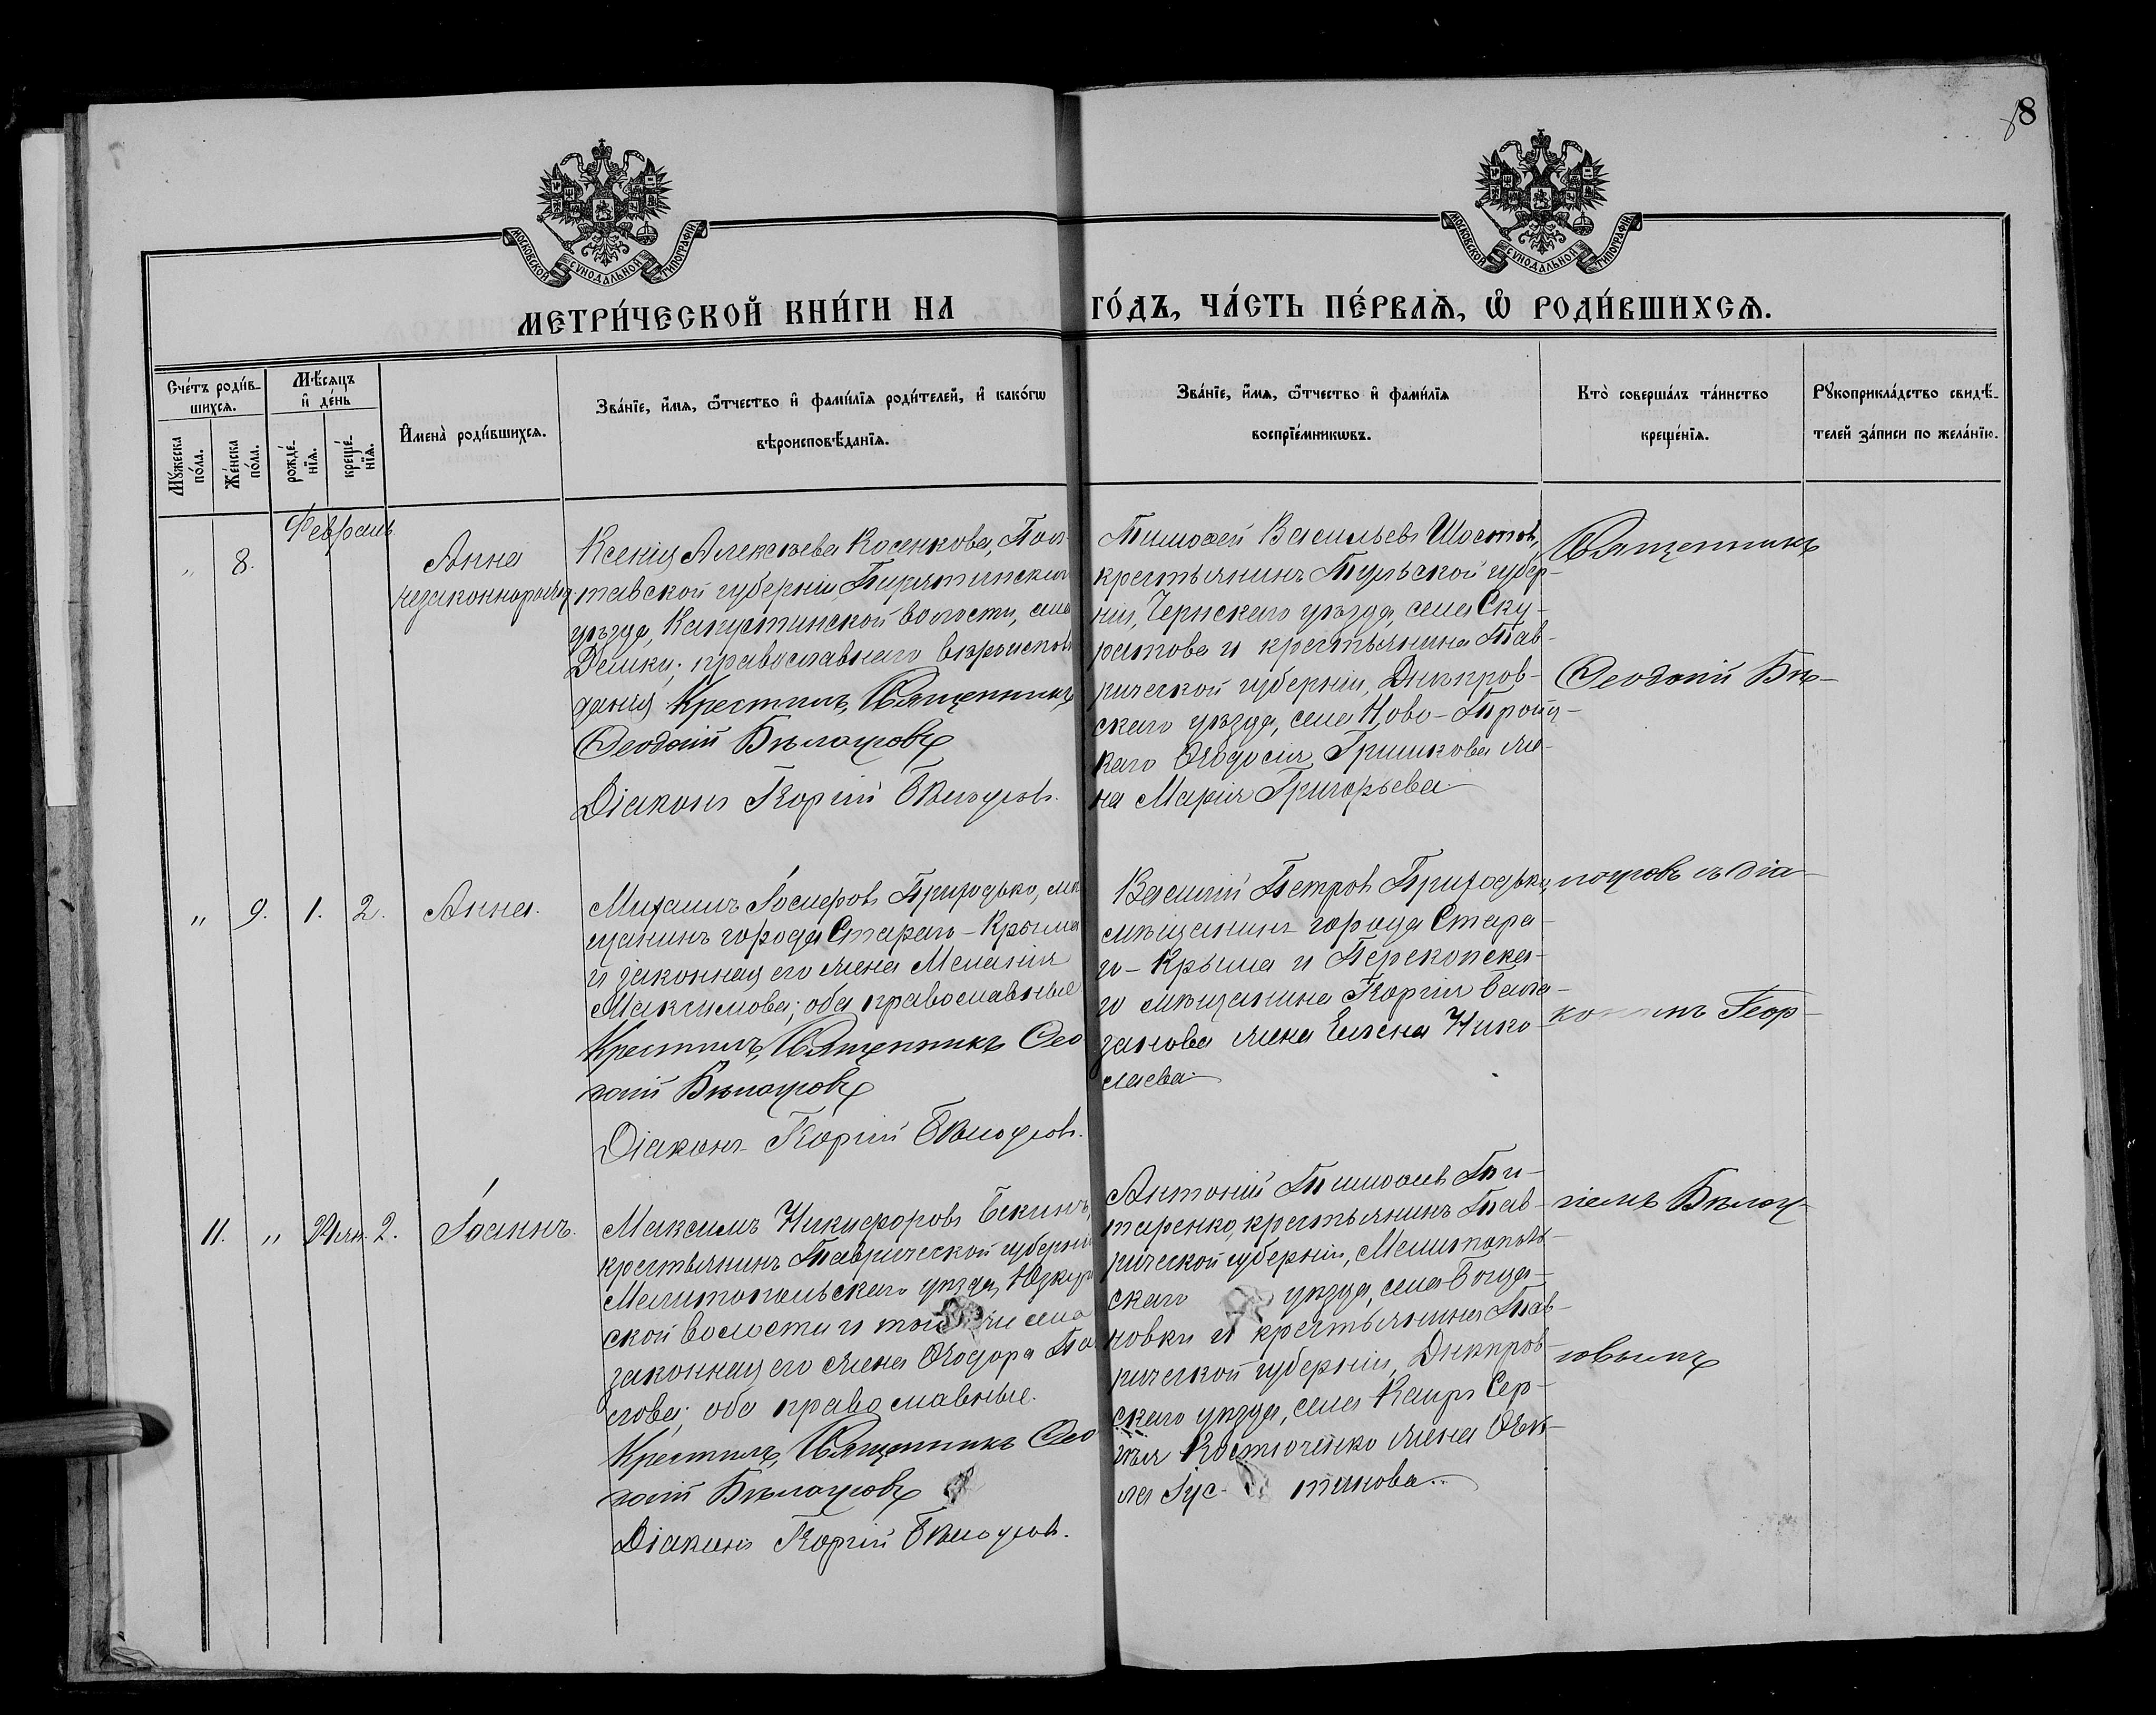 8
МОСКОВСКОЙ СѴНОДАЛЬНОЙ ТИПОГРАФІИ
МОСКОВСКОЙ СѴНОДАЛЬНОЙ ТИПОГРАФІИ
МЕТРИ́ЧЕСКОЙ КНИ́ГИ НА ГО́ДЪ, ЧА́СТЬ ПЕ́РВАѦ, Ѡ҆ РОДИ́ВШИХСѦ.
Сче́тъ роди́в-
шихсѧ.
Мꙋ́жеска
по́ла.
Же́нска
по́ла.
Мѣ́сѧцъ
и҆ де́нь
рожде́-
нїѧ.
креще́-
нїѧ.
И҆мена̀ роди́вшихсѧ.
Зва́нїе, и҆́мѧ, ѻ҆́тчество и҆ фами́лїѧ роди́телей, и҆ како́гѡ
вѣроисповѣ́данїѧ.
Зва́нїе, и҆́мѧ, ѻ҆́тчество и҆ фами́лїѧ
воспрїе́мникѡвъ.
Кто̀ соверша́лъ та́инство
креще́нїѧ.
Рꙋкоприкла́дство свидѣ́-
телей за́писи по жела́нїю.
Февраль
„ 8.
Анна
незаконнорожд.
Ксенія Алексѣева Косенкова, Пол-
тавской губерніи Пирятинскаго
уѣзда, Капустинской волости, села
Демки; православнаго вѣроисповѣ
данія Крестилъ, Священникъ
Ѳеодосій Бѣлоусовъ
Діаконъ Георгій Бѣлоусовъ.
Тимоѳей Васильевъ Шостовъ,
крестьянинъ Тульской губер-
ніи, Чернскаго уѣзда, села Ску-
ратова и крестьянина Тав-
рической губерніи, Днѣпров-
скаго уѣзда, села Ново-Троиц-
каго Ѳеодосія Гришкова же-
на Марія Григорьева
Священникъ
Ѳеодосій Бѣ-
„ 9. 1. 2. Анна.
Михаилъ Іосифовъ Приходько, мѣ
щанинъ города Стараго-Крыма
и законная его жена Меланія
Максимова; оба православные
Крестилъ, Священникъ Ѳео
досій Бѣлоусовъ
Діаконъ Георгій Бѣлоусовъ.
Василій Петровъ Приходько,
мѣщанинъ города Стара-
го-Крыма и Перекопска-
го мѣщанина Георгія
жена Елена Нико-
лаева
лоусовъ съ діа-
кономъ Геор-
11. „ 2. Іоаннъ.
Максимъ Никифоровъ Бекинъ,
крестьянинъ Таврической губерніи
Мелитопольскаго уѣзда, Юзкуй
ской волости и того же села
законная его жена Ѳеодора
лова; оба православные.
Крестилъ, Священникъ Ѳео
досій Бѣлоусовъ
Діаконъ Георгій Бѣлоусовъ.
Антоній Тимоѳеевъ Ти-
таренко, крестьянинъ Тав-
рической губерніи, Мелитополь-
скаго уѣзда, села Богда-
новки и крестьянина Тав-
рической губерніи, Днѣпров-
скаго уѣзда, села Каиръ Сер-
гѣя Костюченко жена Ѳек-
ла Іус- тинова..
гіемъ Бѣлоу-
совымъ